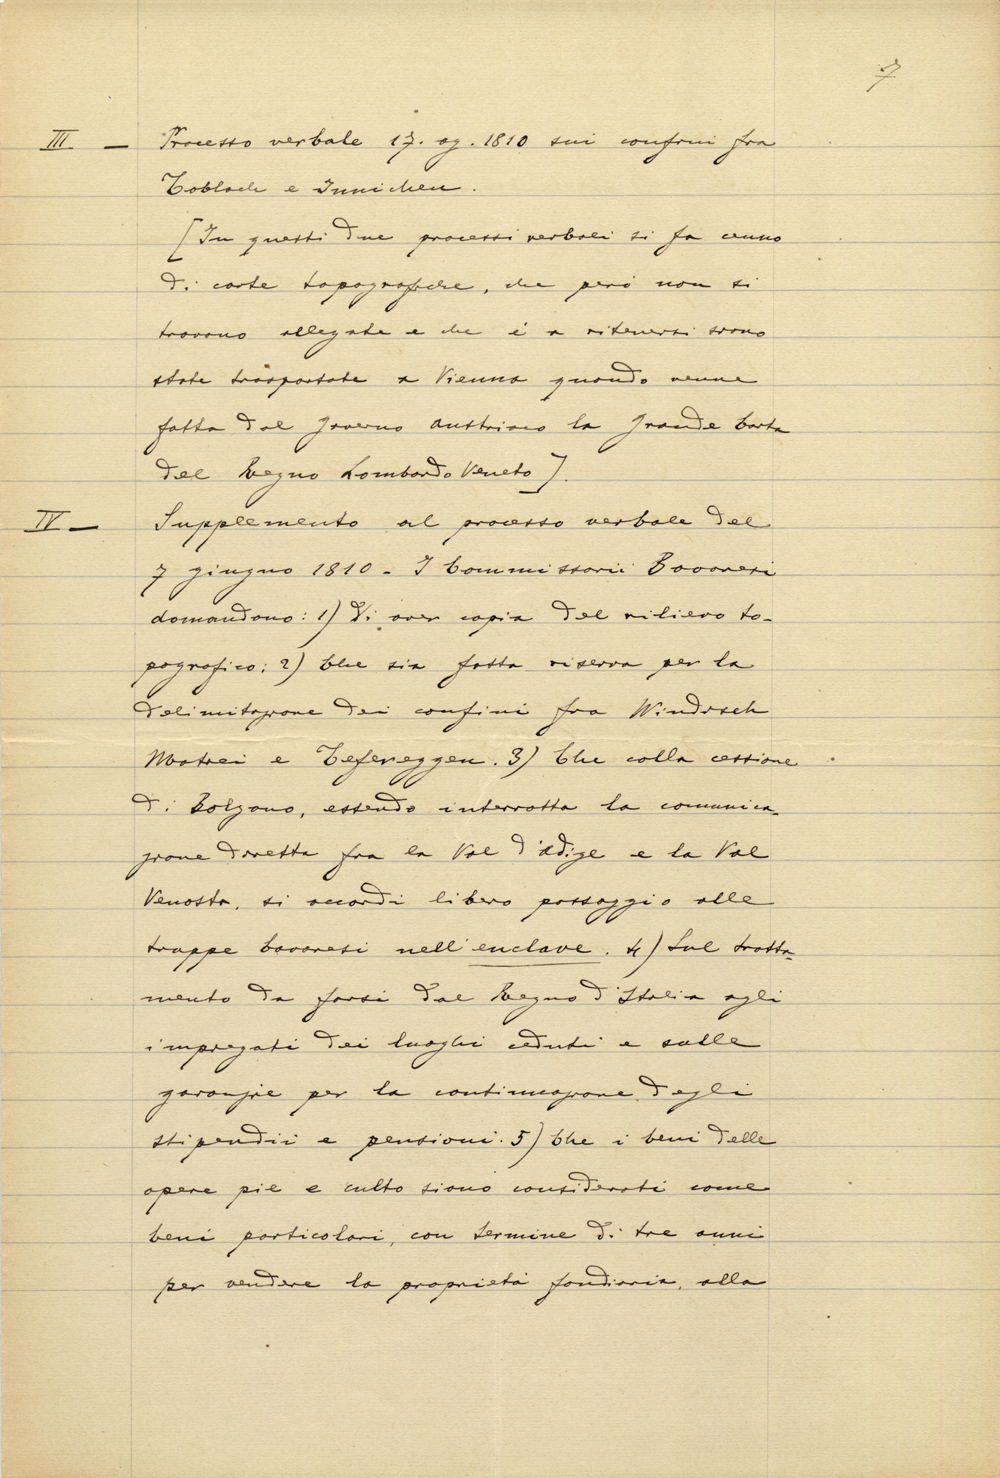 7
III — Processo verbale 17. ag. 1810 sui confini fra
Toblach e Innichen.
[In questi due processi verbali si fa cenno
di carte topografiche, che però non si
trovano allegate e che è a ritenersi siano
state trasportate a Vienna quando venne
fatta dal Governo austriaco la Grande Carta
del Regno Lombardo Veneto].
IV — Supplemento al processo verbale del
7 giugno 1810 - I Commissarii Bavaresi
domandano: 1) Di aver copia del rilievo to-
pografico; 2) Che sia fatta riserva per la
delimitazione dei confini fra Windisch
Matrei e Tefereggen. 3) Che colla cessione
di Bolzano, essendo interrotta la comunica-
zione diretta fra la Val d'Adige e la Val
Venosta, si accordi libero passaggio alle
truppe bavaresi nell'enclave. 4) Sul tratta-
mento da farsi dal Regno d'Italia agli
impiegati dei luoghi ceduti e sulle
garanzie per la continuazione degli
stipendii e pensioni. 5) Che i beni delle
opere pie e culto siano considerati come
beni particolari, con termine di tre anni
per vendere la proprietà fondiaria, alla